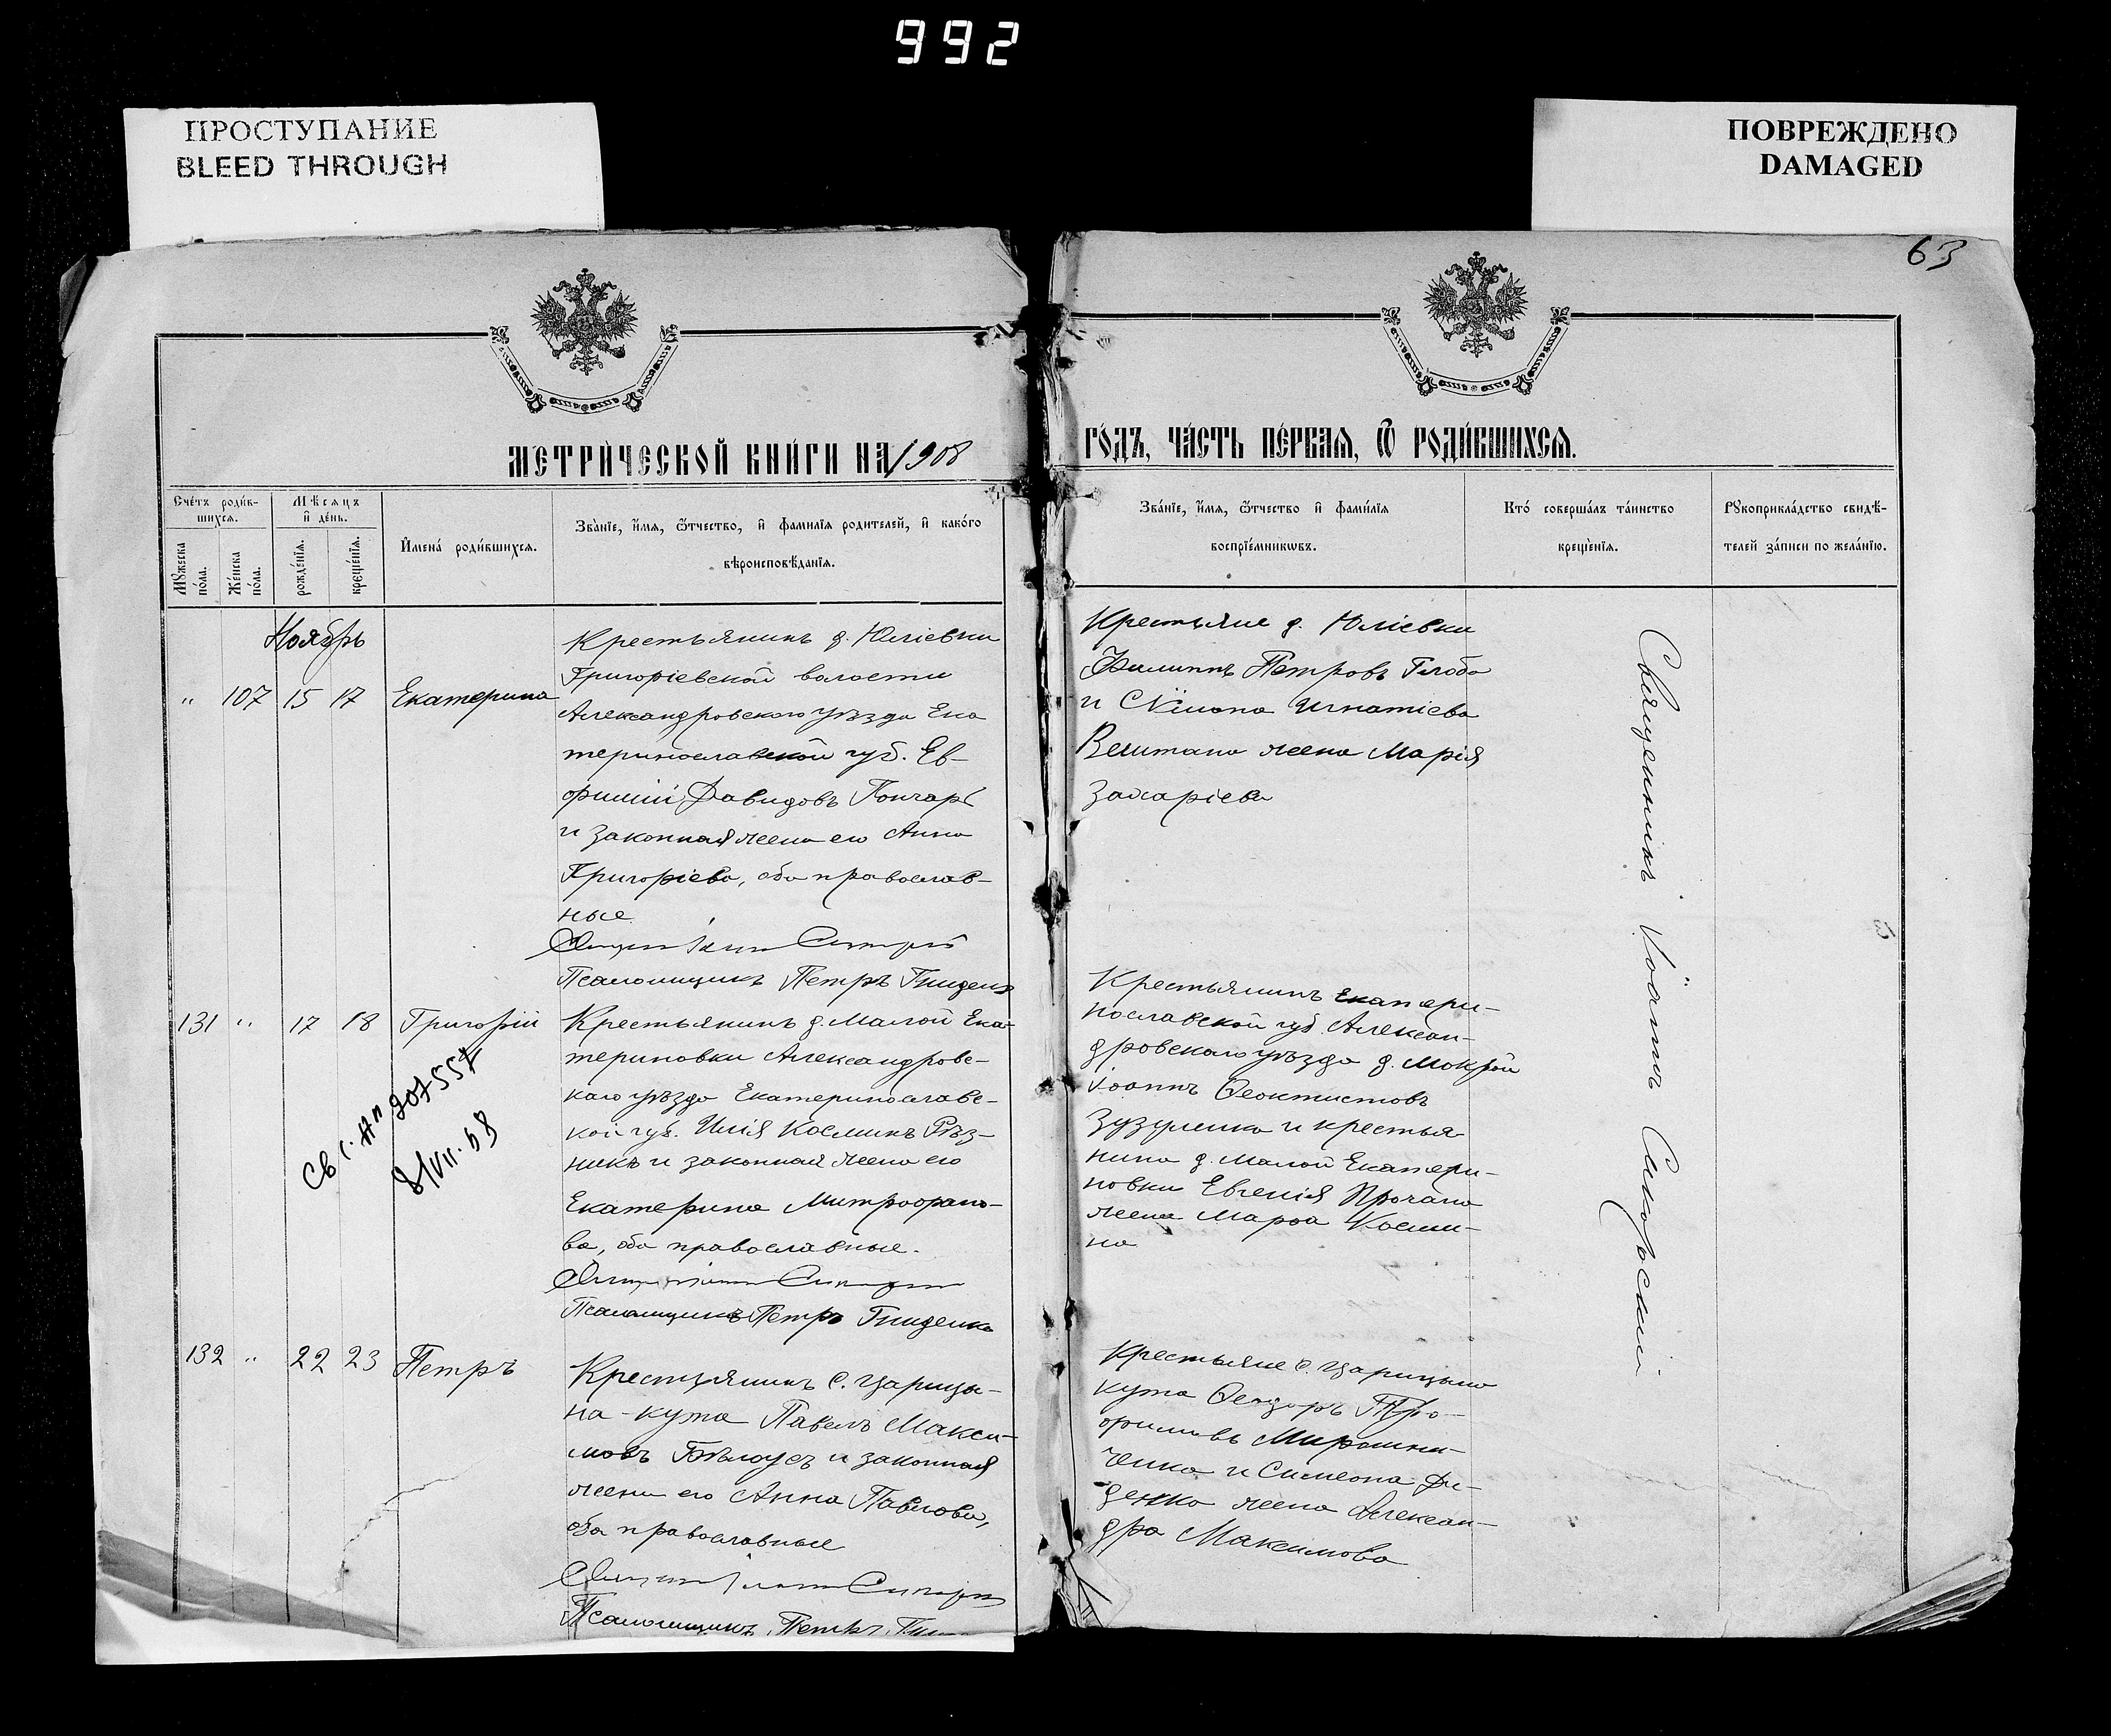 992
ПРОСТУПАНИЕ
BLEED THROUGH
ПОВРЕЖДЕНО
DAMAGED
63
МЕТРИ́ЧЕСКОЙ КНИ́ГИ НА 1908
ГО́ДЪ, ЧА́СТЬ ПЕ́РВАЯ, Ѿ РОДИ́ВШИХСЯ.
Сче́тъ роди́в-
шихся.
Мꙋ́жеска по́ла.
Же́нска по́ла.
Мѣ́сяцъ
и҆ де́нь.
рожде́нїя.
креще́нїя.
И҆мена̀ роди́вшихся.
Зва́нїе, и҆́мя, ѻ҆́тчество, и҆ фами́лїя родителей, и҆ како́гѡ
вѣроисповѣ́данїя.
Зва́нїе, и҆́мя, ѻ҆́тчество и҆ фами́лїя
воспрїе́мникѡвъ.
Кто́ соверша́лъ та́инство
креще́нїя.
Рꙋкоприкла́дство свидѣ́-
телей за́писи по жела́нїю.
Ноябрь
" 107 15 17 Екатерина
Крестьянинъ д. Юліевки
Григоріевской волости
Александровскаго уѣзда Ека
теринославской губ. Ев-
фимій Давидовъ Гончаръ
и законная жена его Анна
Григоріева, оба православ-
ные
Псаломщикъ Петръ Гниденко
Крестьяне д. Юліевки
Филиппъ Петровъ Глоба
и Симона Игнатіева
Вештана жена Марія
Захаріева
131 " 17 18 Григорій
Св. 207557
8/VII. 68
Крестьянинъ д. Малой Ека-
териновки Александровс-
каго уѣзда Екатеринославс-
кой губ. Илія Косминъ Рѣз-
никъ и законная жена его
Екатерина Митрофано-
ва, оба православные.
Псаломщикъ Петръ Гниденко
Крестьянинъ Екатери-
нославской губ. Алексан-
дровскаго уѣзда д. Мокрой
Іоаннъ Ѳеоктистовъ
Зузуленко и крестья
нина д. Малой Екатери-
новки Евгенія Прочана
жена Марѳа Косми-
на
132 " 22 23 Петръ
Крестьянинъ с. Царицы-
на-кута Павелъ Макси-
мовъ Бѣлоусъ и законная
жена его Анна Павлова,
оба православные
Псаломщикъ Петръ
Крестьяне с. Царицына
кута Ѳеодоръ Тро-
фимовъ Мирошни-
ченко и Симеона Ди-
денко жена Алексан-
дра Максимова
Священникъ Іоаннъ Сикорскій